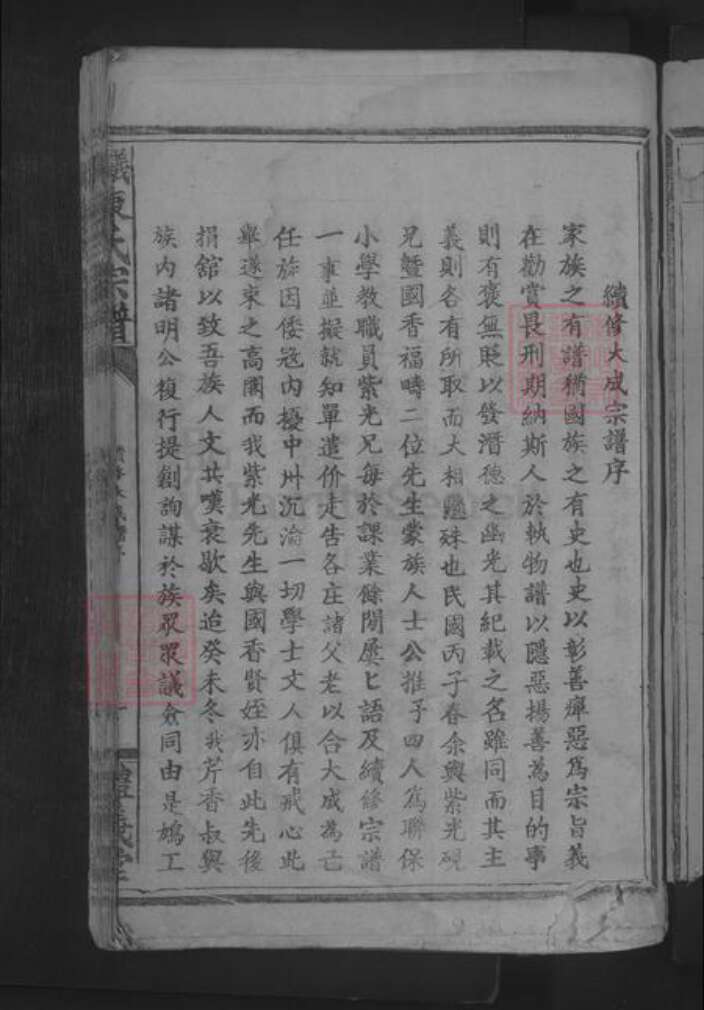 續修大成宗譜序
家族之有譜猶國族之有史也史以彰善癉惡為宗旨義
在勸賞畏刑期納斯人於執物譜以隱惡揚善為目的事
則有褒無貶以發潛德之幽光其紀載之名雖同而其主
義則各有所取而大相懸殊也民國丙子春余與紫光硯
兄暨國香福疇二位先生蒙族人士公推予四人為聯保
小學教職員紫光兄每於課業餘閒屢匕語及續修宗譜
一事並擬就知單遣价走告各庄諸父老以合大成為己
任旋因倭寇內擾中州沉淪一切學士文人俱有戒心此
舉遂束之高閣而我紫光先生與國香賢姪亦自此先後
捐舘以致吾族人文共嘆衰歇矣迨癸未冬我芹香叔與
族內諸明公復行提創詢謀於族眾眾議僉同由是鳩工
氏宗譜